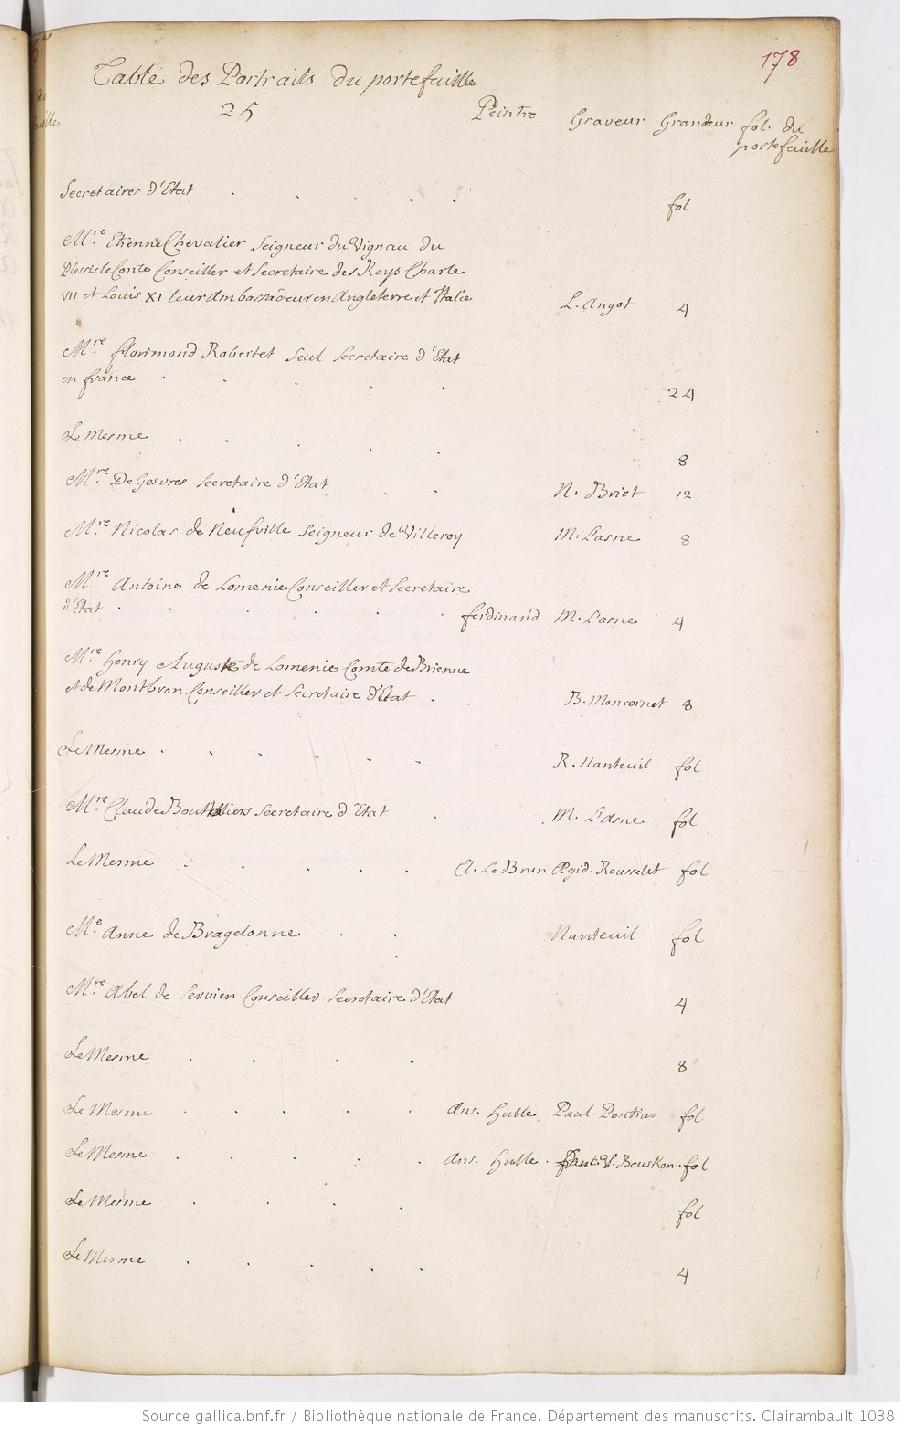 178
Table des Portraits du portefeuille
25
Peintre Graveur Grandeur fol. du
portefeuille
Secretaires d'Etat . . . . . fol
Mre. Etienne Chevalier Seigneur du Vignau du
Plessis le Conte Conseiller et Secretaire des Roys Charle
VII et Louis XI leur ambassadeur en Angleterre et Italie L. Angot 4
Mre. florimond Robertet Seul Secretaire d'Etat
en france . . . . . 24
Le Mesme . . . . . 8
Mre. De Gesvres Secretaire d'Etat . . N. Briot 12
Mre. Nicolas de Neufville Seigneur de Villeroy M. Lasne 8
Mre. Antoine de Lomenie Conseiller et Secretaire
d'Etat . . . . . . ferdinand M. Lasne 4
Mre. Henry Auguste de Lomenie Comte de Brienne
et de Montbron Conseiller et Secretaire d'Etat . B. Moncornet 8
Le Mesme . . . . . . R. Nanteuil fol
Mre. Claude Bouthillier Secretaire d'Etat . . M. Lasne fol
Le Mesme . . . . . A. Le Brun Ægid. Rousselet fol
Me. Anne de Bragelonne . . Nanteuil fol
Mre. Abel de Servien Conseiller Secretaire d'Etat 4
Le Mesme . . . . 8
Le Mesme . . . . . Ans. Hulle. Paul Pontius fol
Le Mesme . . . . . Ans. Hulle . fol
Le Mesme . . . . fol
Le Mesme . . . . . 4
Source gallica.bnf.fr / Bibliothèque nationale de France. Département des manuscrits. Clairambault 1038